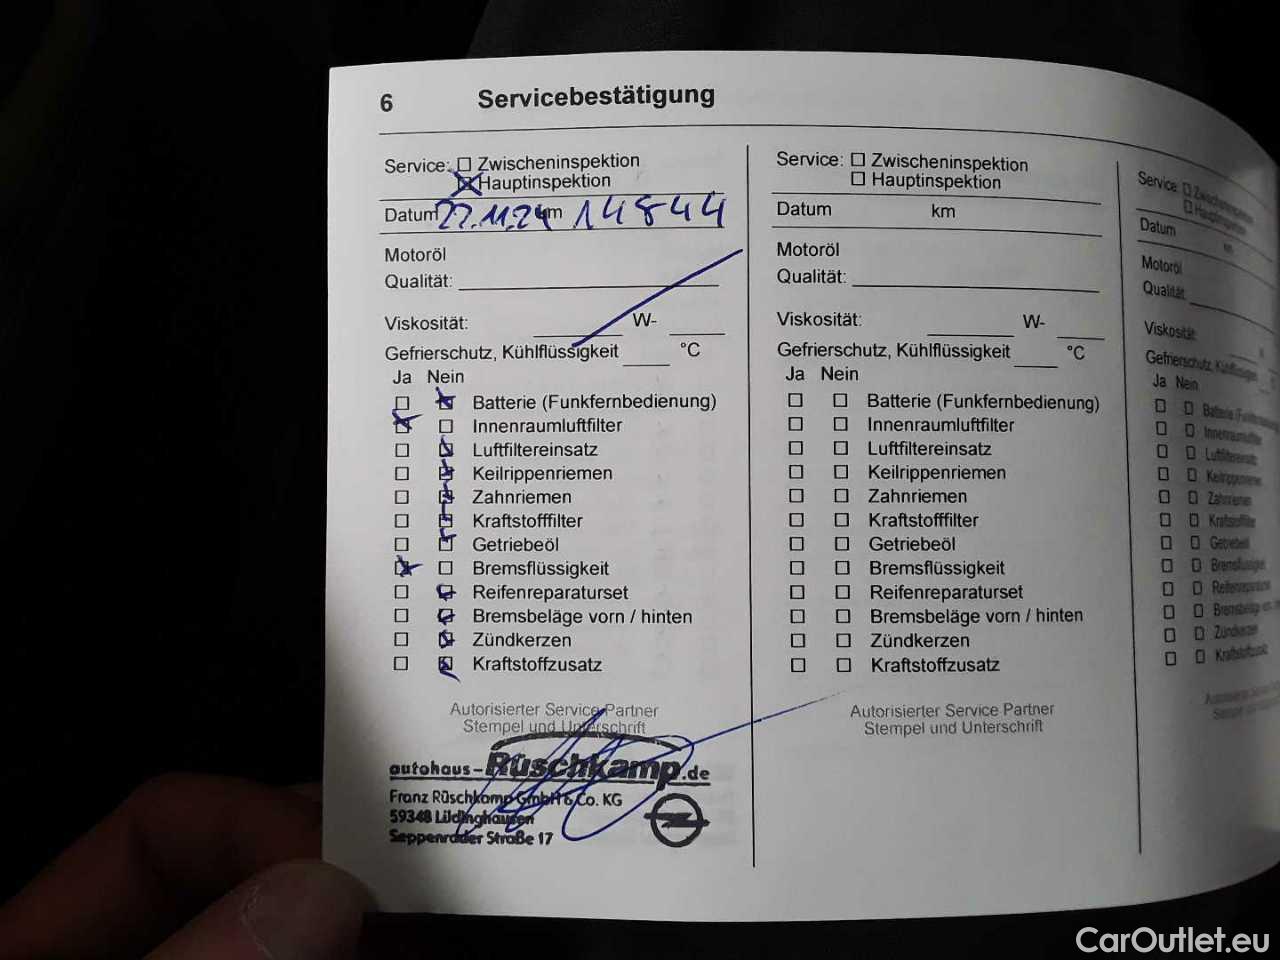 6 Servicebestätigung
Service: Zwischeninspektion
Hauptinspektion
Datum 22.11.24 km 14844
Motoröl
Qualität:
Viskosität: W-
Gefrierschutz, Kühlflüssigkeit °C
Ja Nein
Batterie (Funkfernbedienung)
Innenraumluftfilter
Luftfiltereinsatz
Keilrippenriemen
Zahnriemen
Kraftstofffilter
Getriebeöl
Bremsflüssigkeit
Reifenreparaturset
Bremsbeläge vorn / hinten
Zündkerzen
Kraftstoffzusatz
Autorisierter Service Partner
Stempel und Unterschrift
autohaus-Rüschkamp.de
Franz Rüschkamp GmbH & Co. KG
59348 Lüdinghausen
Seppenrader Straße 17
Service: Zwischeninspektion
Hauptinspektion
Datum km
Motoröl
Qualität:
Viskosität: W-
Gefrierschutz, Kühlflüssigkeit °C
Ja Nein
Batterie (Funkfernbedienung)
Innenraumluftfilter
Luftfiltereinsatz
Keilrippenriemen
Zahnriemen
Kraftstofffilter
Getriebeöl
Bremsflüssigkeit
Reifenreparaturset
Bremsbeläge vorn / hinten
Zündkerzen
Kraftstoffzusatz
Autorisierter Service Partner
Stempel und Unterschrift
Service: Zwischeninspektion
Hauptinspektion
Datum km
Motoröl
Qualität:
Viskosität:
Gefrierschutz, Kühlflüssigkeit
Ja Nein
Batterie
Innenraumluftfilter
Luftfiltereinsatz
Keilrippenriemen
Zahnriemen
Kraftstofffilter
Getriebeöl
Bremsflüssigkeit
Reifenreparaturset
Bremsbeläge vorn
Zündkerzen
Kraftstoffzusatz
CarOutlet.eu